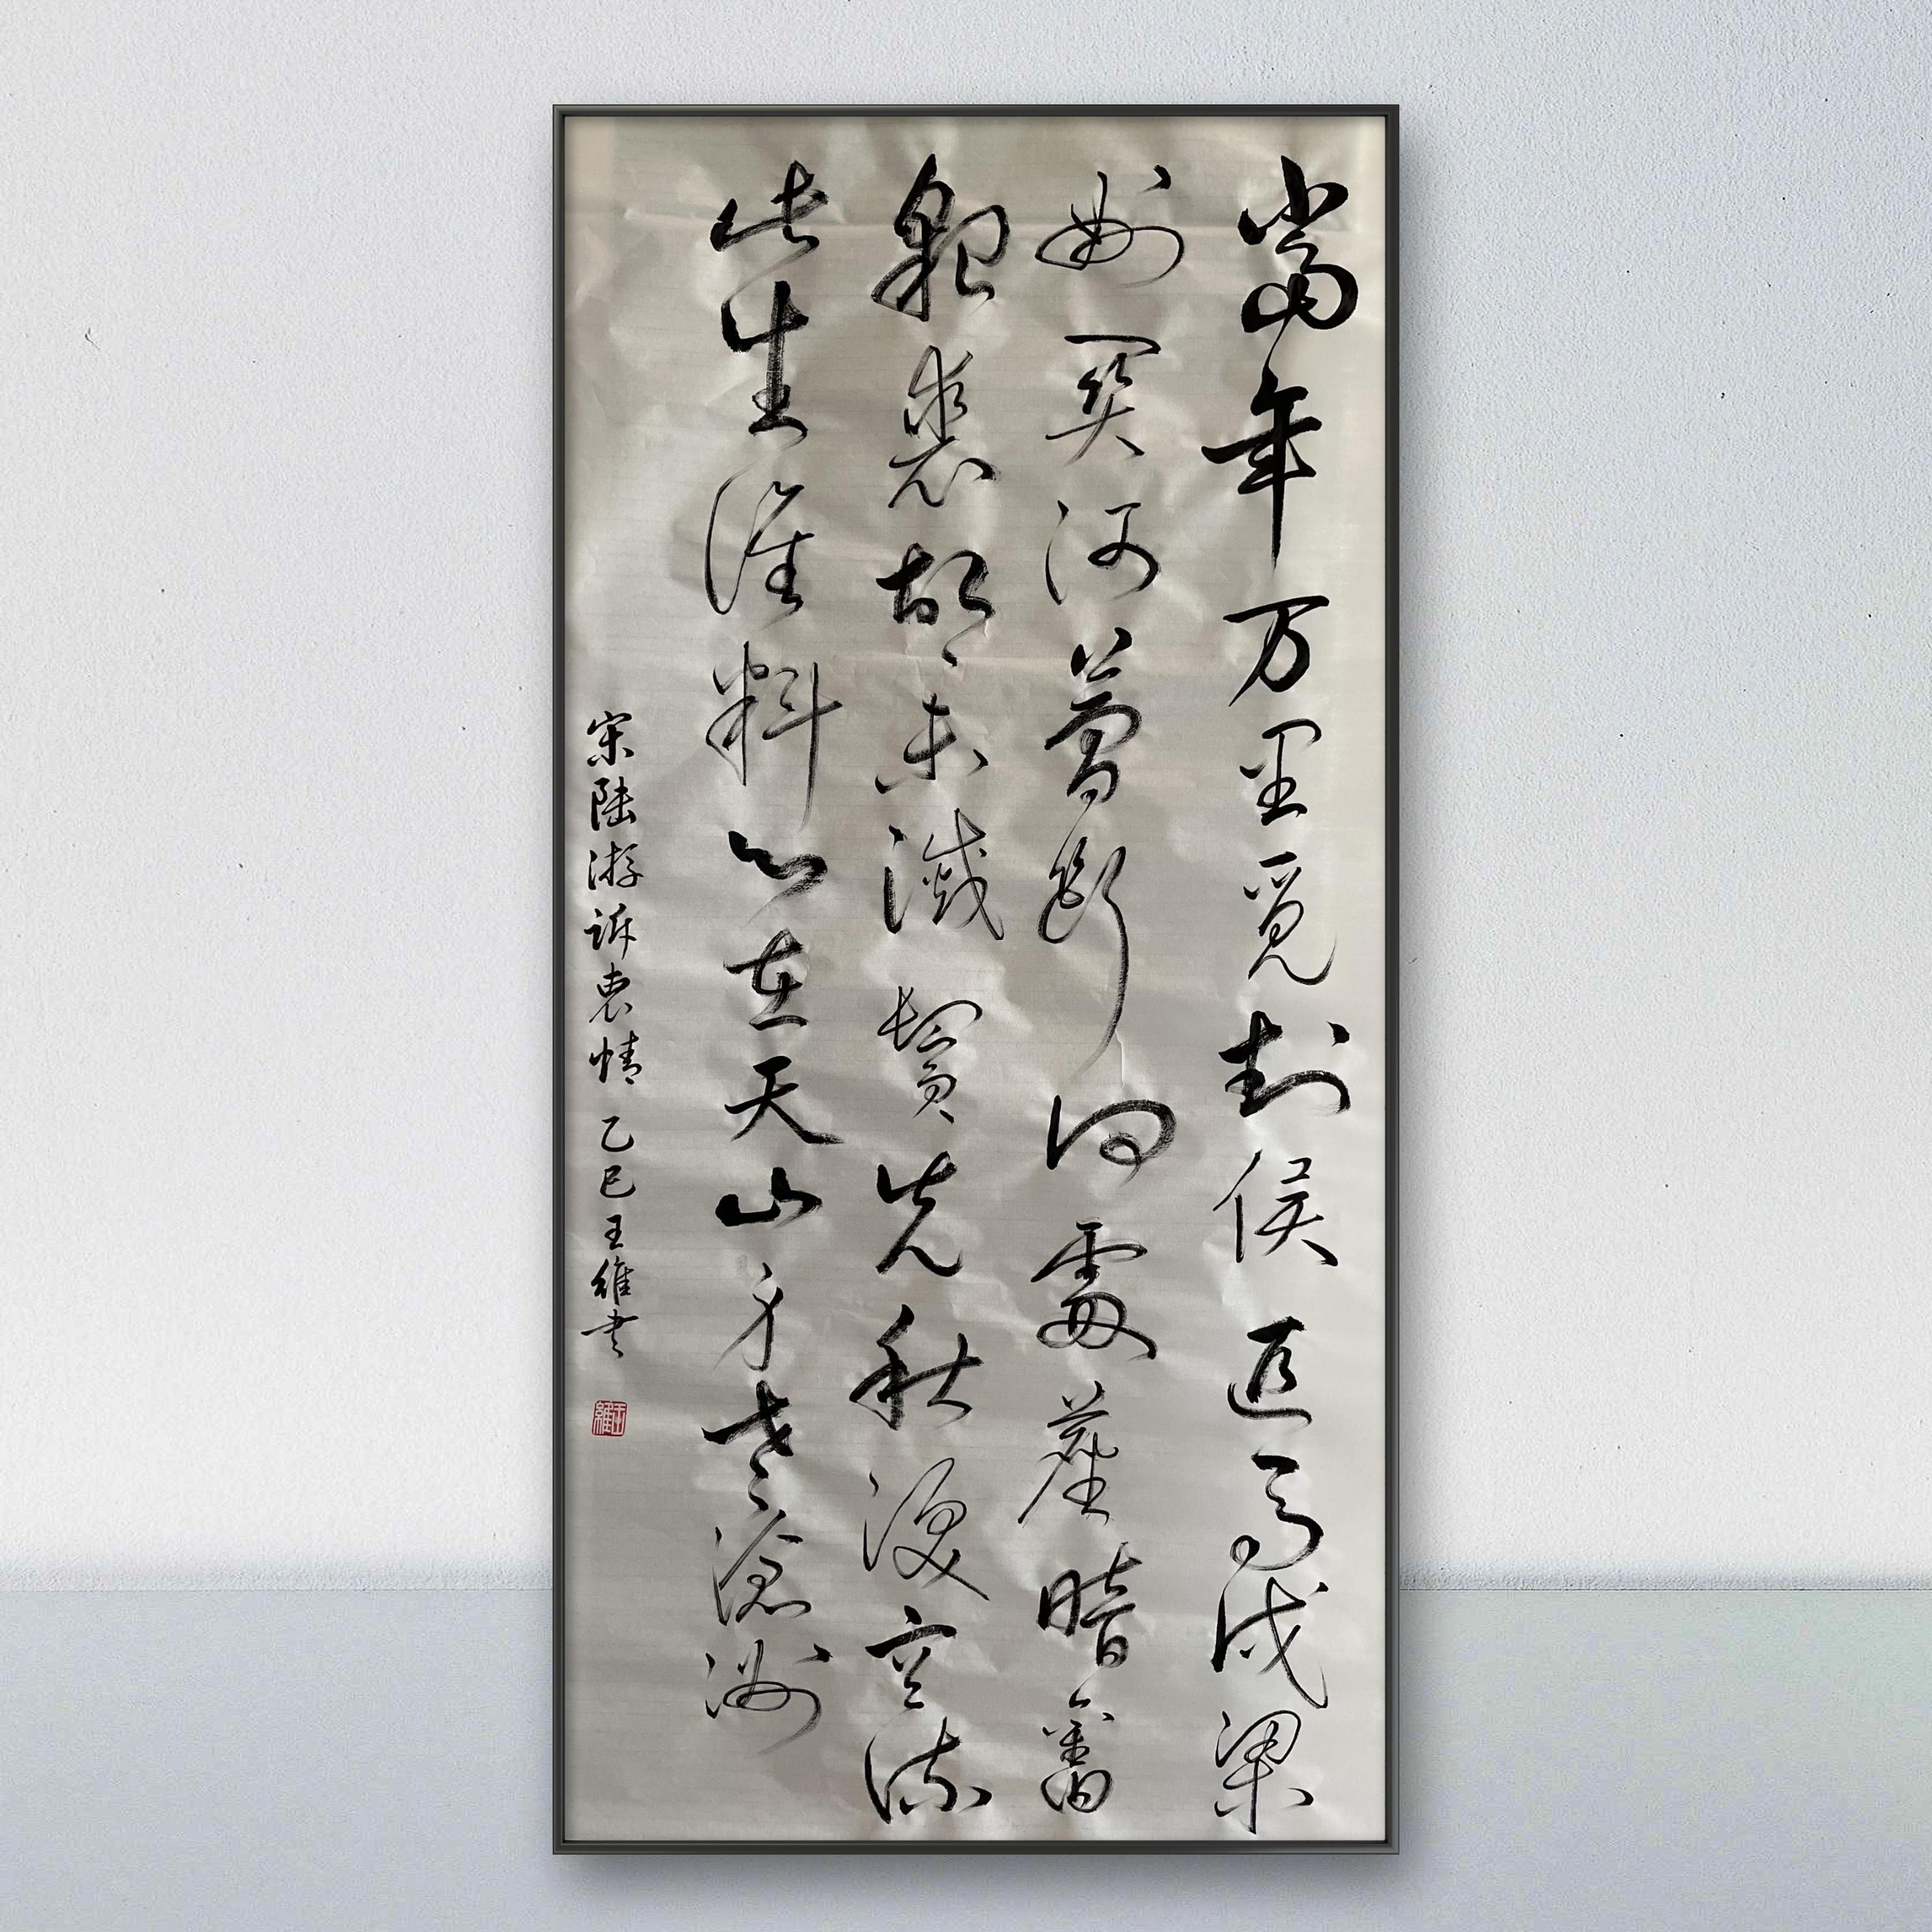 當年万里覓封侯匹馬戍梁
州關河夢斷何處塵暗舊
貂裘胡未滅鬢先秋淚空流
此生誰料心在天山身老滄洲
宋陸游訴衷情 乙巳王維書
王維